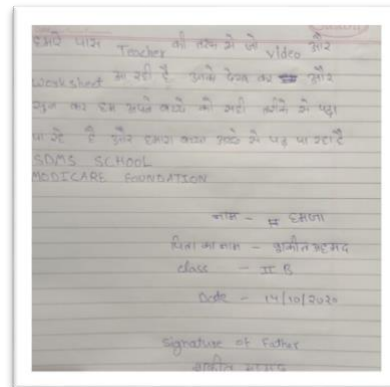 हमारे पास Teacher की तरफ से जो video और
worksheet आ रही है उनको देख कर और
सुन कर हम अपने बच्चे को सही तरीके से पढ़ा
पा रहे है और हमारा बच्चा अच्छे से पढ़ पा रहा है
SDMS SCHOOL
MODICARE FOUNDATION
नाम - हमजा
पिता का नाम - शकील अहमद
class - II B
Date - 14/10/2020
Signature of Father
शकील अहमद